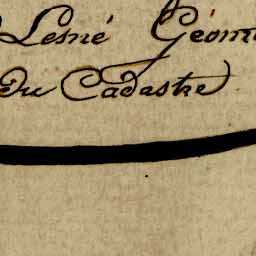 Lesné Géom
Du Cadastre